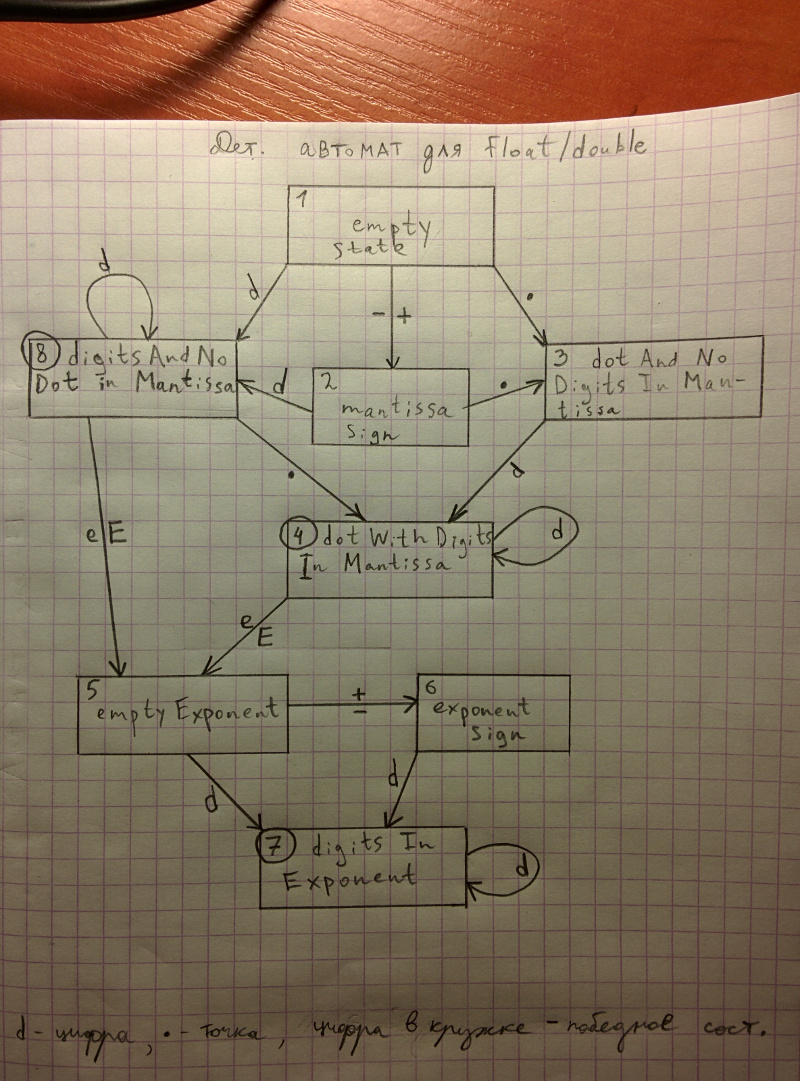 Дет. автомат для float/double
1
empty
state
d
d
- +
.
8 digits And No
Dot in Mantissa
d
2
mantissa
sign
.
3 dot And No
Digits In Man-
tissa
.
d
e E
4 dot With Digits
In Mantissa
d
e
E
5
empty Exponent
+
-
6
exponent
sign
d
d
7 digits In
Exponent
d
d - цифра, • - точка, цифра в кружке - победное сост.